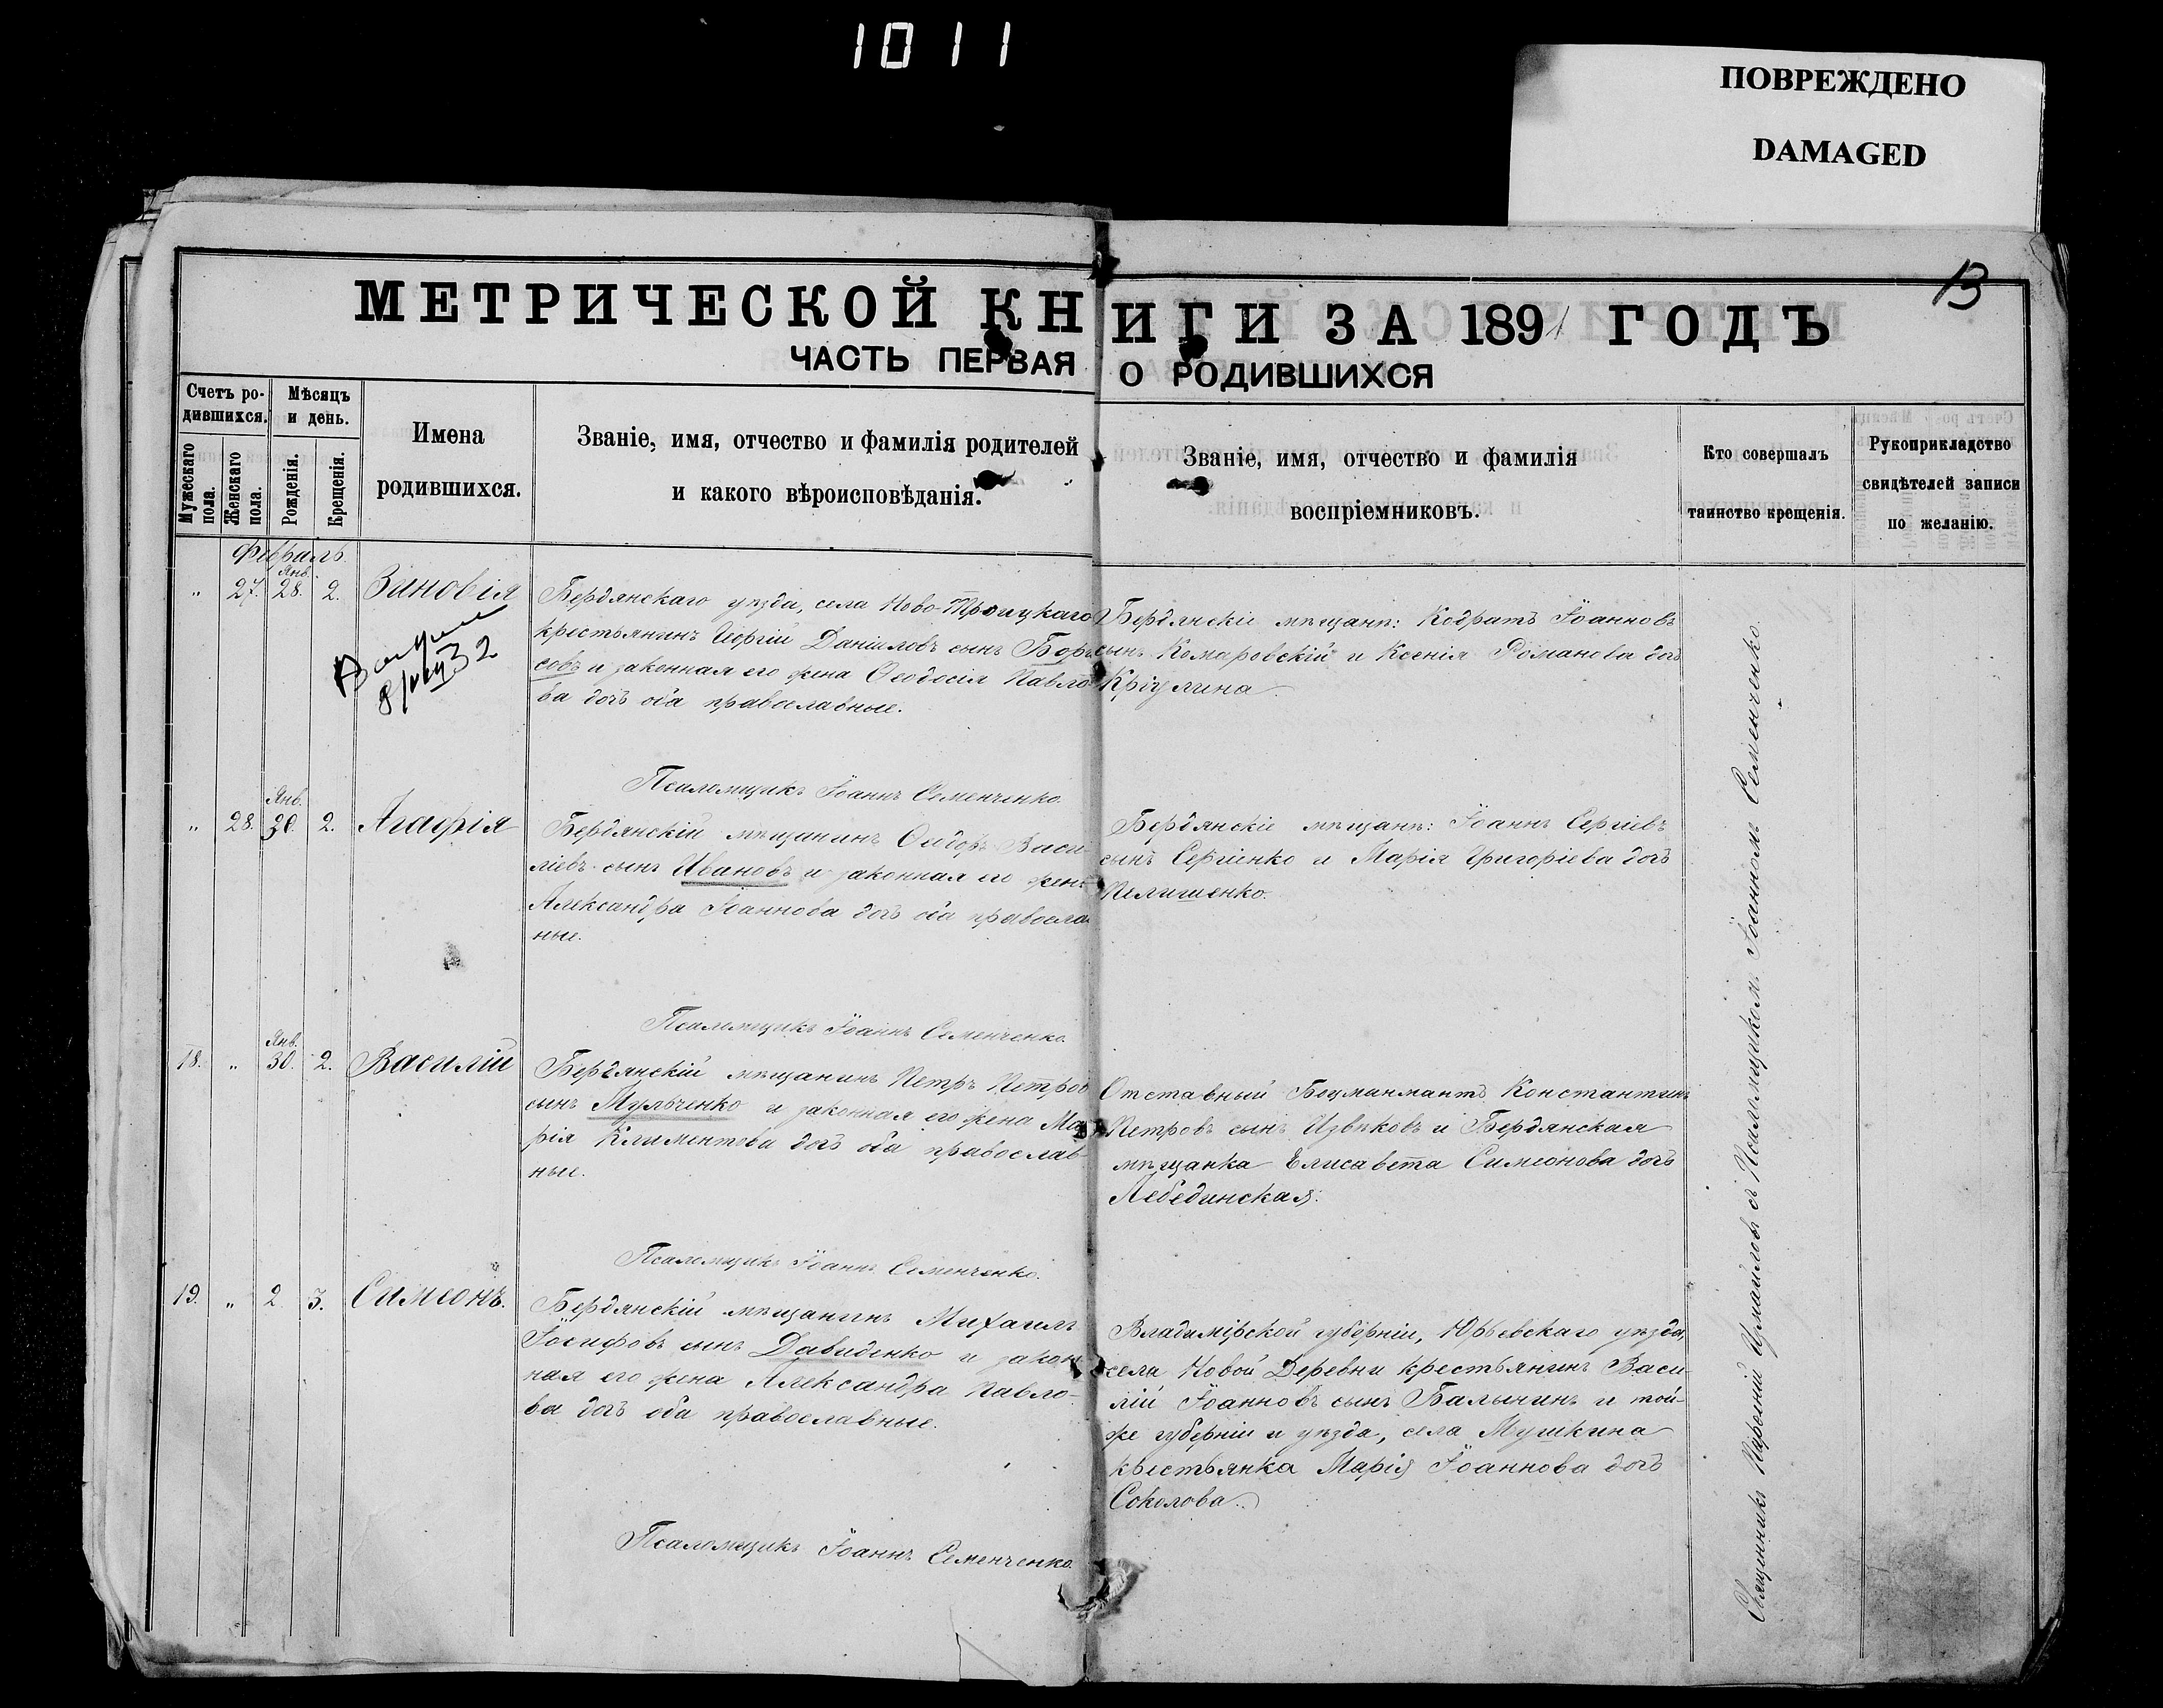 1011
ПОВРЕЖДЕНО
DAMAGED
13
МЕТРИЧЕСКОЙ КНИГИ ЗА 1891 ГОДЪ
ЧАСТЬ ПЕРВАЯ О РОДИВШИХСЯ
Счетъ ро-
дившихся.
Мужескаго
пола.
Женскаго
пола.
Мѣсяцъ
и день.
Рожденія.
Крещенія.
Имена
родившихся.
Званіе, имя, отчество и фамилія родителей
и какого вѣроисповѣданія.
Званіе, имя, отчество и фамилія
воспріемниковъ.
Кто совершалъ
таинство крещенія.
Рукоприкладство
свидѣтелей записи
по желанію.
Февраль
Янв.
„ 27. 28. 2. Зиновія
Бердянскаго уѣзда, села Ново-Троицкаго
крестьянинъ Георгій Даніиловъ сынъ Бори-
совъ и законная его жена Ѳеодосія Павло-
ва дочь оба православные.
Бердянскіе мѣщане: Кодратъ Іоанновъ
сынъ Комаровскій и Ксенія Романова дочь
Псаломщикъ Іоаннъ Семенченко.
Янв.
„ 28. 30. 2. Агафія
Бердянскій мѣщанинъ Васи-
ліевъ сынъ Ивановъ и законная его жена
Александра Іоаннова дочь оба православ-
ные.
Бердянскіе мѣщане: Іоаннъ Сергіевъ
сынъ Сергіенко и Марія Григоріева дочь
Пелишенко.
Псаломщикъ Іоаннъ Семенченко.
Янв.
18. „ 30. 2. Василій
Бердянскій мѣщанинъ Петръ Петровъ
сынъ Мульченко и законная его жена Ма-
рія Климентова дочь оба православ-
ные.
Отставный Боцманматъ Константинъ
Петровъ сынъ Извѣковъ и Бердянская
мѣщанка Елисавета Симеонова дочь
Лебединская.
Псаломщикъ Іоаннъ Семенченко.
19. „ 2. 3. Симеонъ.
Бердянскій мѣщанинъ Михаилъ
Іосифовъ сынъ Давиденко и закон-
ная его жена Александра Павло-
ва дочь оба православные.
Владимірской губерніи, Юрьевскаго уѣзда,
села Новой Деревни крестьянинъ Васи-
лій Іоанновъ сынъ Балынинъ и той-
же губерніи и уѣзда, села Мушкина
крестьянка Марія Іоаннова дочь
Соколова.
Псаломщикъ Іоаннъ Семенченко.
Священникъ Измаиловъ съ Псаломщикомъ Іоанномъ Семенченко.